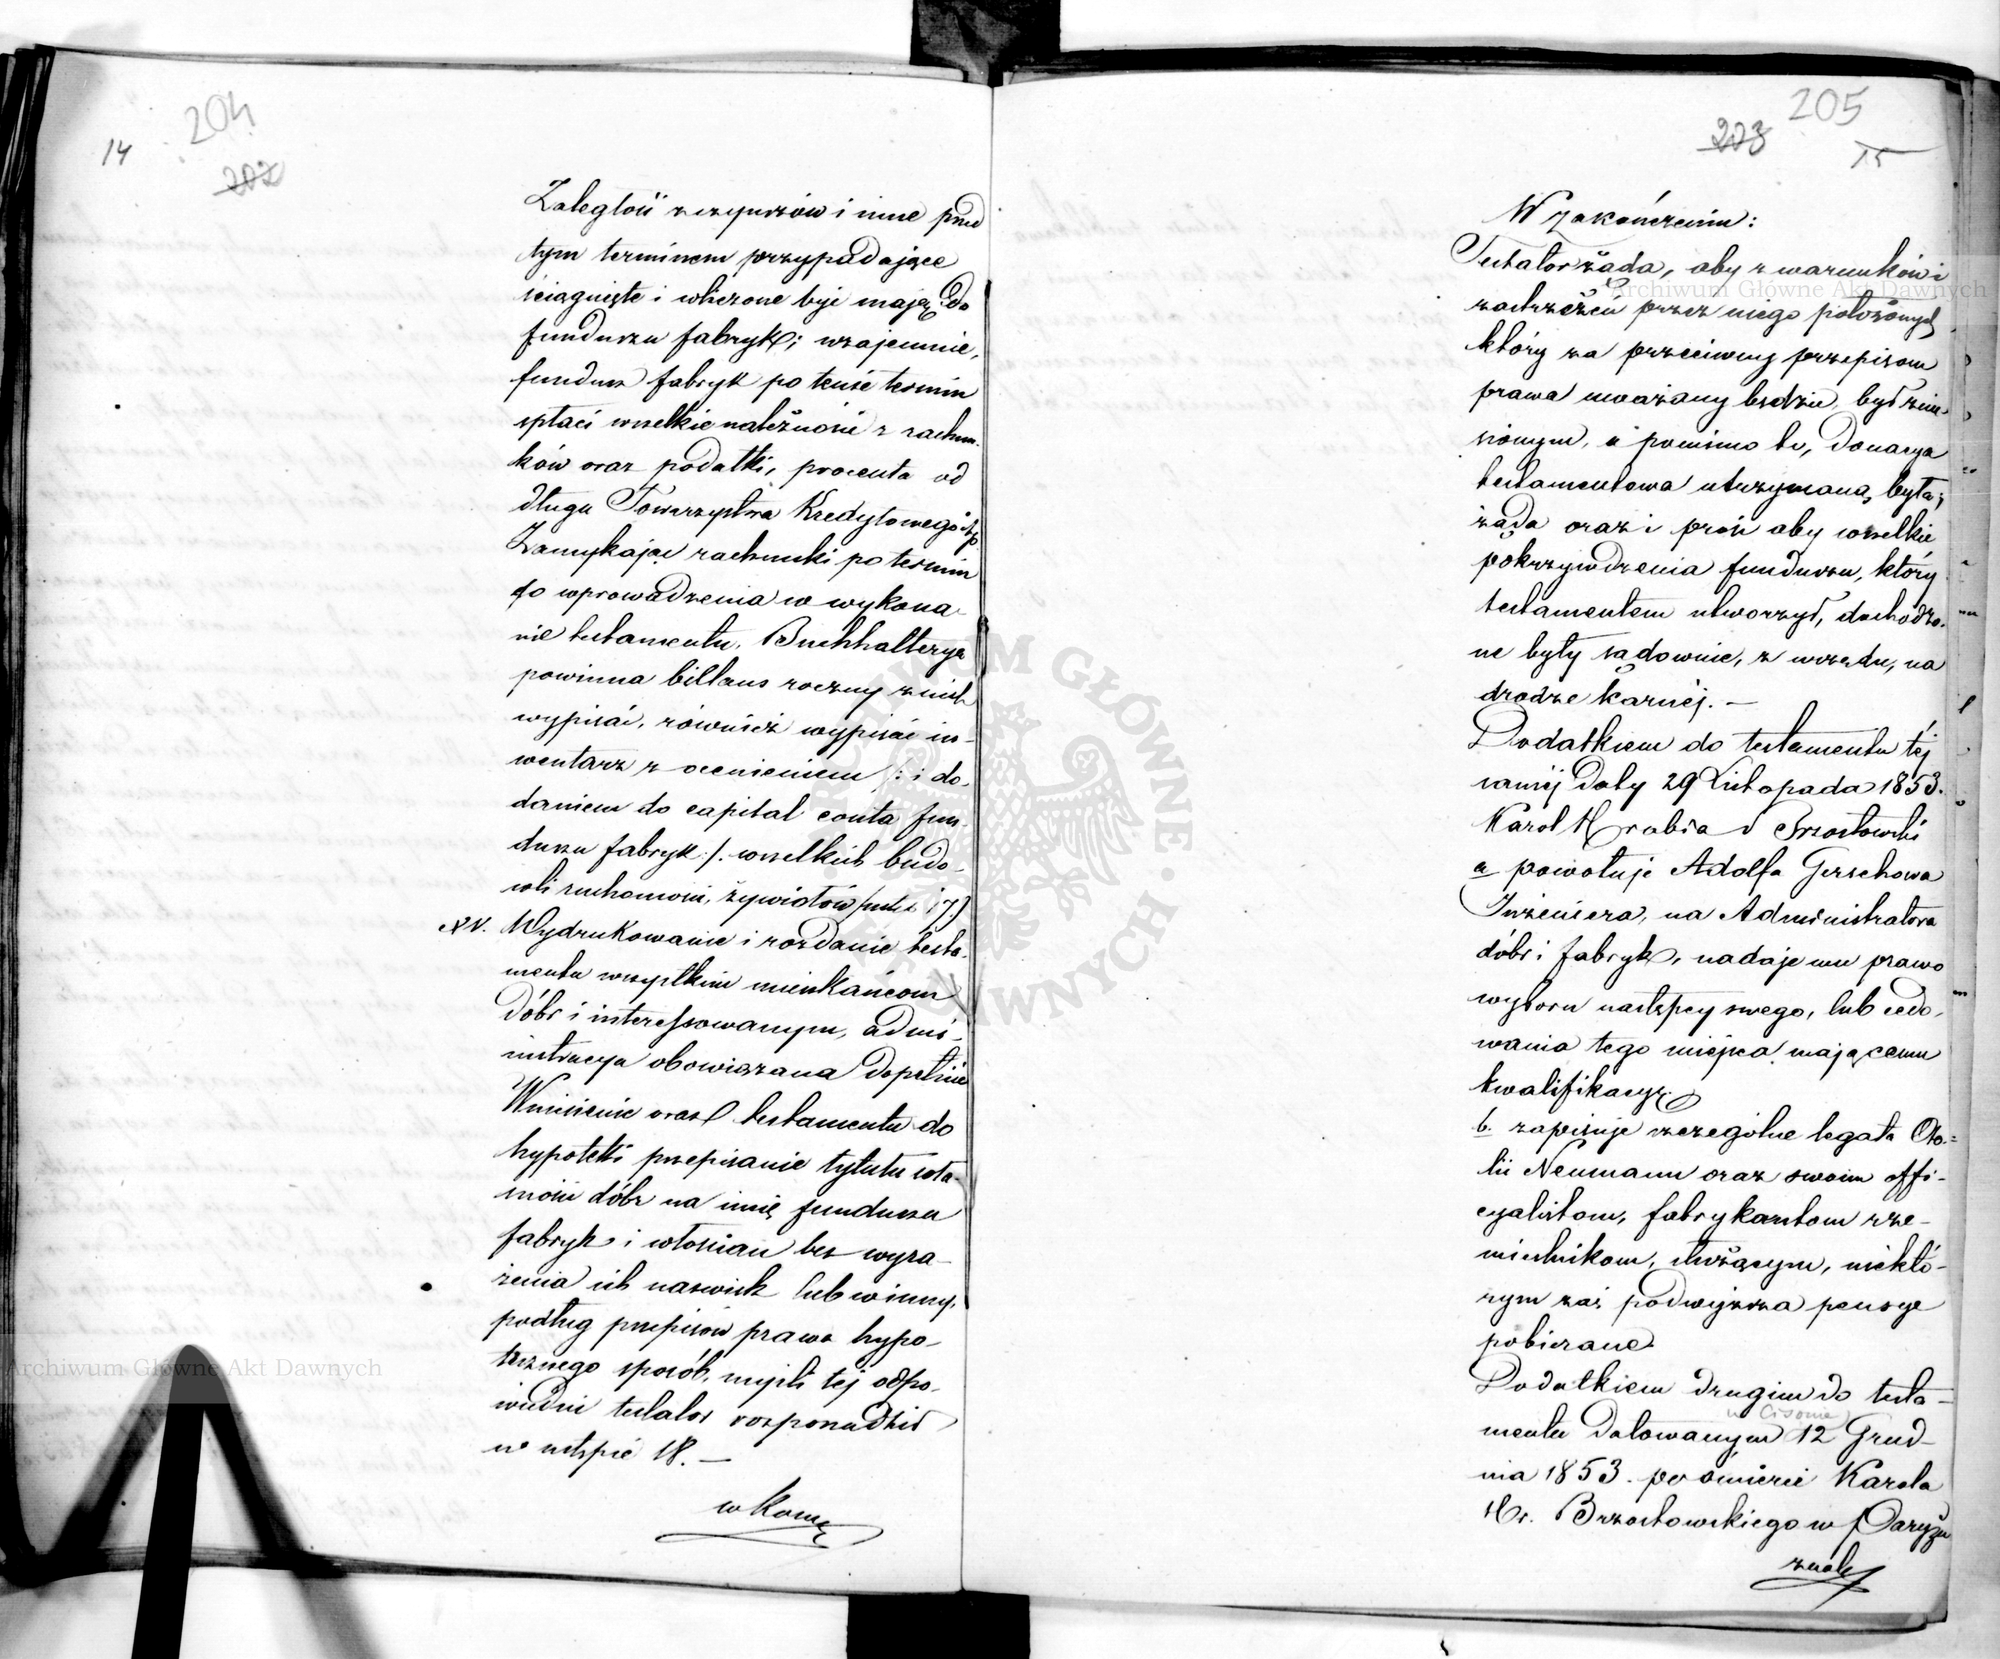 14
204
202
Zaległość z czynszów i inne przed
tym terminem przypadające
ściągnięte i wliczone być mają do
funduszu fabryk; wzajemnie,
fundusz fabryk po tenże termin
spłaci wszelkie należności z rachun-
ków oraz podatki, procenta od
długu Towarzystwa Kredytowego itp
Zamykając rachunki po termin
do wprowadzenia w wykona-
nie testamentu, Buchhalterya
powinna billans roczny z nich
wypisać, również wypisać in-
wentarz z ocenieniem /: i do-
daniem do capital conta fun-
duszu fabryk :/ wszelkich budo-
wli ruchomości, żywiołów
XV. Wydrukowanie i rozdanie testa-
mentu wszystkim mieszkańcom
dóbr i interessowanym, admi-
nistracya obowiązana dopełnić
Wniesienie oraz testamentu do
hypoteki przepisanie tytułu wła-
sności dóbr na imię funduszu
fabryk i włościan bez wyra-
żenia ich nazwisk lub w inny,
podług przepisów prawa hypo-
tecznego sposób, myśli tej odpo-
wiedni testator rozporządził
w ustępie 18. —
w Koncu
205
203
15
W zakończeniu:
Testator żąda, aby z warunków i
zastrzeżeń przez niego położonych
który za przeciwny przepisom
prawa uważany będzie, był znie-
sionym, a pomimo to, donacya
testamentowa utrzymaną była;
żąda oraz i prosi aby wszelkie
pokrzywdzenia funduszu, który
testamentem utworzył, dochodzo-
ne były sądownie, z urzędu, na
drodze karnéj. —
Dodatkiem do testamentu téj
saméj daty 29 Listopada 1853.
Karol Hrabia Brzostowski
a powołuje Adolfa Gerschowa
Inżeniera, na Administratora
dóbr i fabryk, nadaje mu prawo
wyboru następcy swego, lub cedo-
wania tego miejsca mającemu
kwalifikacyę
b. zapisuje szczególne legata Oty-
lii Neumann oraz swoim offi-
cyalistom, fabrykantom rze-
mieślnikom, służącym, niektó-
rym zaś podwyższa pensye
pobierane
Dodatkiem drugim do testa-
w Cisowie
mentu datowanym 12 Grud-
nia 1853. po śmierci Karola
Hr. Brzostowskiego w Paryżu
znale
Archiwum Główne Akt Dawnych
Archiwum Główne Akt Dawnych
ARCHIWUM GŁÓWNE AKT DAWNYCH